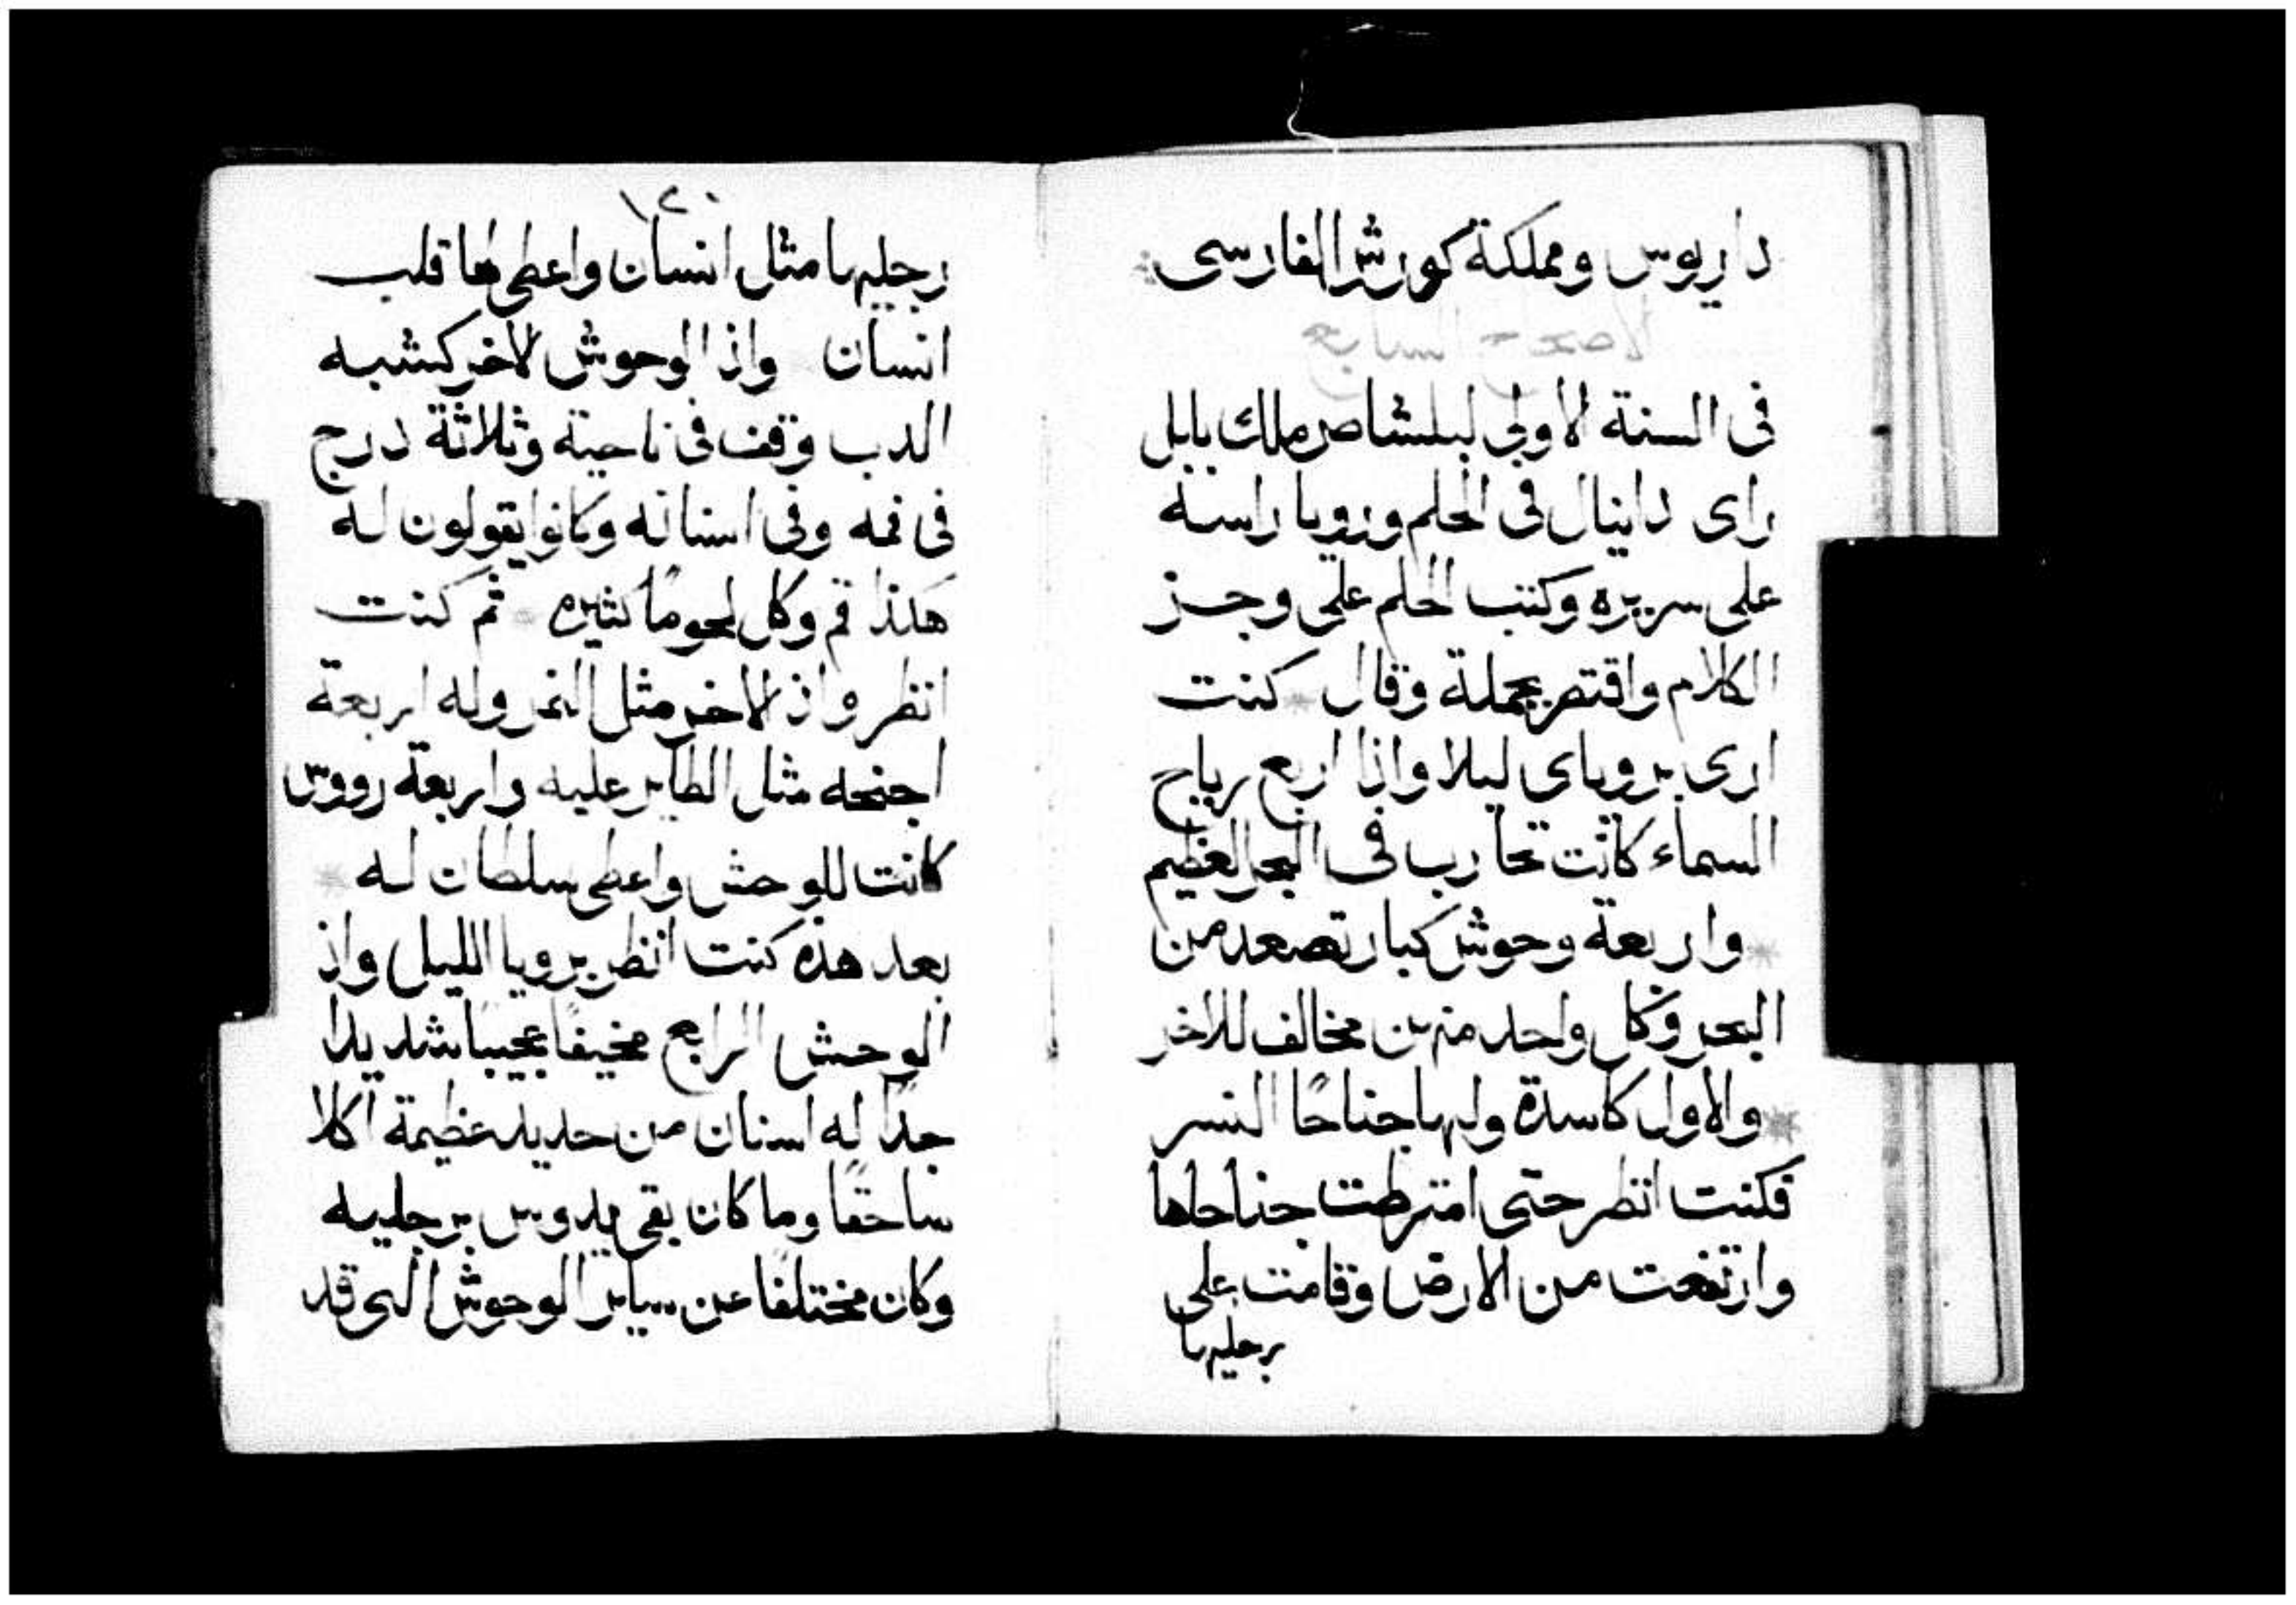 داريوس ومملكة كورش الفارسى
الاصحاح السابع
فى السنة الاولى لبلشاصر ملك بابل
راى دانيال فى الحلم ورويا راسه
على سريره وكتب الحلم على وجز
الكلام واقتصر بجملة وقال * كنت
ارى بروياى ليلا واذا اربع رياح
السماء كانت تحارب فى البحر العظيم
* واربعة وحوش كبار تصعد من
البحر وكل واحد منهن مخالف للاخر
* والاول كاسدة ولها جناحًا النسر
فكنت انظر حتى امترطت جناحاها
وارتفعت من الارض وقامت على
رجليها
١٢٠
رجليها مثل انسان واعطى لها قلب
انسان * واذ الوحوش الاخر كشبه
الدب وقف فى ناحية وثلاثة درج
فى فمه وفى اسنانه وكانوا يقولون له
هكذا قم وكل لحومًا كثيره * ثم كنت
انظر واذ الاخر مثل النمر وله اربعة
اجنحه مثل الطاير عليه واربعة رووس
كانت للوحش واعطى سلطان له *
بعد هذه كنت انظر برويا الليل واذ
الوحش الرابع مخيفًا عجيبًا شديدا
جدًا له اسنان من حديد عظيمة اكلا
ساحقًا وما كان بقى يدوس برجليه
وكان مختلفًا عن ساير الوحوش التى قد